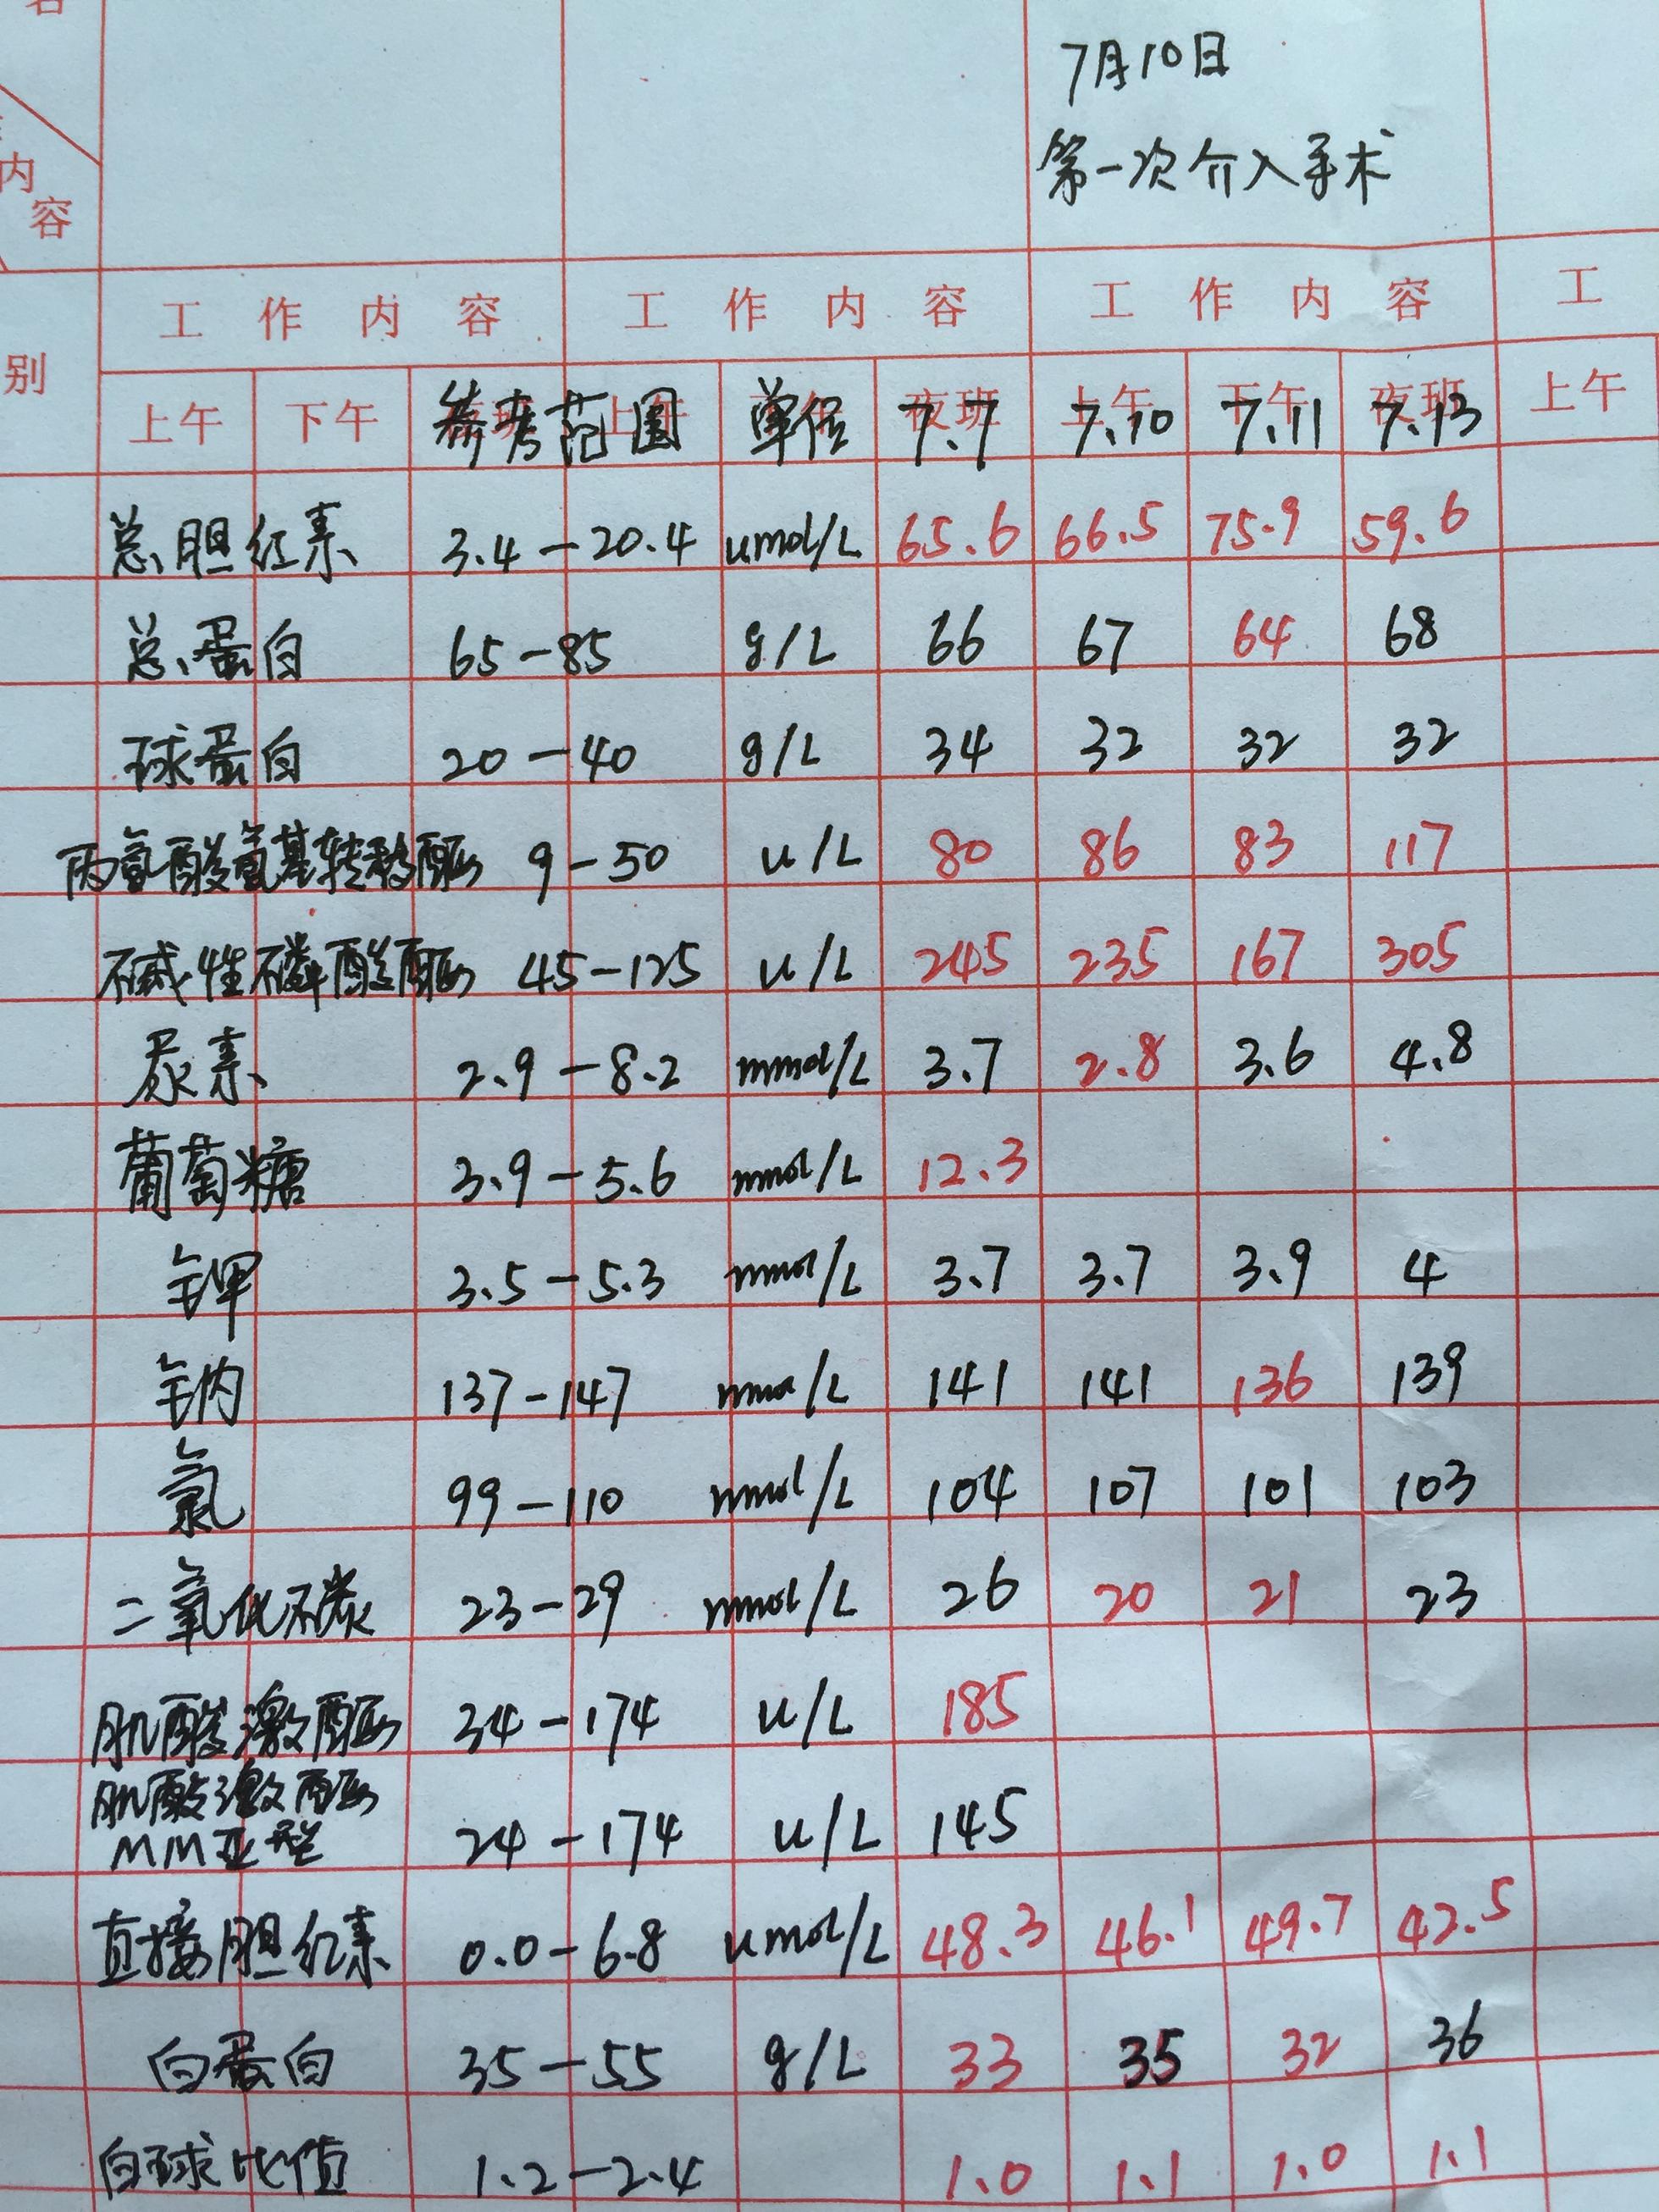 名
7月10日
第一次介入手术
内
容
工作内容 工作内容 工作内容 工
别
上午 下午 夜班 上午 下午 夜班 上午 下午 夜班 上午
参考范围 单位 7.7 7.10 7.11 7.13
总胆红素 3.4-20.4 umol/L 65.6 66.5 75.9 59.6
总蛋白 65-85 g/L 66 67 64 68
球蛋白 20-40 g/L 34 32 32 32
丙氨酸氨基转移酶 9-50 u/L 80 86 83 117
碱性磷酸酶 45-125 u/L 245 235 167 305
尿素 2.9-8.2 mmol/L 3.7 2.8 3.6 4.8
葡萄糖 3.9-5.6 mmol/L 12.3
钾 3.5-5.3 mmol/L 3.7 3.7 3.9 4
钠 137-147 mmol/L 141 141 136 139
氯 99-110 mmol/L 104 107 101 103
二氧化碳 23-29 mmol/L 26 20 21 23
肌酸激酶 34-174 u/L 185
肌酸激酶
MM亚型 24-174 u/L 145
直接胆红素 0.0-6.8 umol/L 48.3 46.1 49.7 42.5
白蛋白 35-55 g/L 33 35 32 36
白球比值 1.2-2.4 1.0 1.1 1.0 1.1